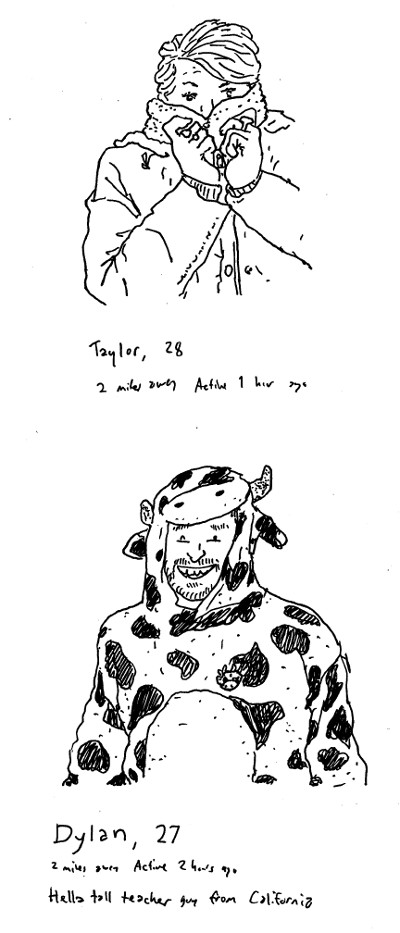 Taylor, 28
2 miles away Active 1 hour ago
Dylan, 27
2 miles away Active 2 hours ago
Hella tall teacher guy from California